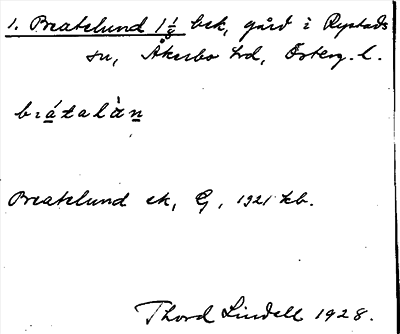 1. Breatelund 1 1/8 bck, gård i Rystads
sn, Åkerbo hd, Österg. l.
brátalàn
Breatelund ek, G, 1921 kb.
Thord Lindell 1928.